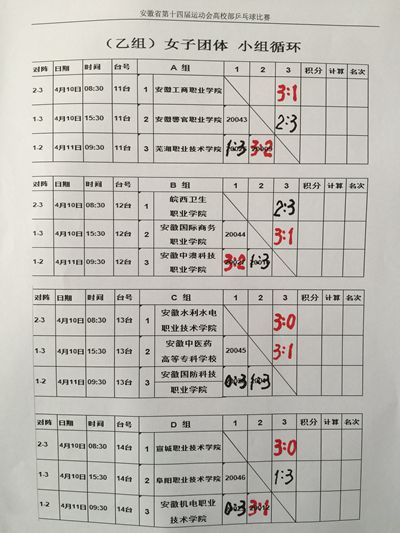 安徽省第十四届运动会高校部乒乓球比赛
（乙组）女子团体 小组循环
对阵 日期 时间 台号 A 组 1 2 3 积分 计算 名次
2-3 4月10日 08:30 11台 1 安徽工商职业学院 3:1
1-3 4月10日 15:30 11台 2 安徽警官职业学院 20043 2:3
1-2 4月11日 09:30 11台 3 芜湖职业技术学院 1:3 3:2
对阵 日期 时间 台号 B 组 1 2 3 积分 计算 名次
2-3 4月10日 08:30 12台 1 皖西卫生
职业学院 2:3
1-3 4月10日 15:30 12台 2 安徽国际商务
职业学院 20044 3:1
1-2 4月11日 09:30 12台 3 安徽中澳科技
职业学院 3:2 1:3
对阵 日期 时间 台号 C 组 1 2 3 积分 计算 名次
2-3 4月10日 08:30 13台 1 安徽水利水电
职业技术学院 3:0
1-3 4月10日 15:30 13台 2 安徽中医药
高等专科学校 20045 3:1
1-2 4月11日 09:30 13台 3 安徽国防科技
职业学院 0:3 1:3
对阵 日期 时间 台号 D 组 1 2 3 积分 计算 名次
2-3 4月10日 08:30 14台 1 宣城职业技术学院 3:0
1-3 4月10日 15:30 14台 2 阜阳职业技术学院 20046 1:3
1-2 4月11日 09:30 14台 3 安徽机电职业
技术学院 0:3 3:1